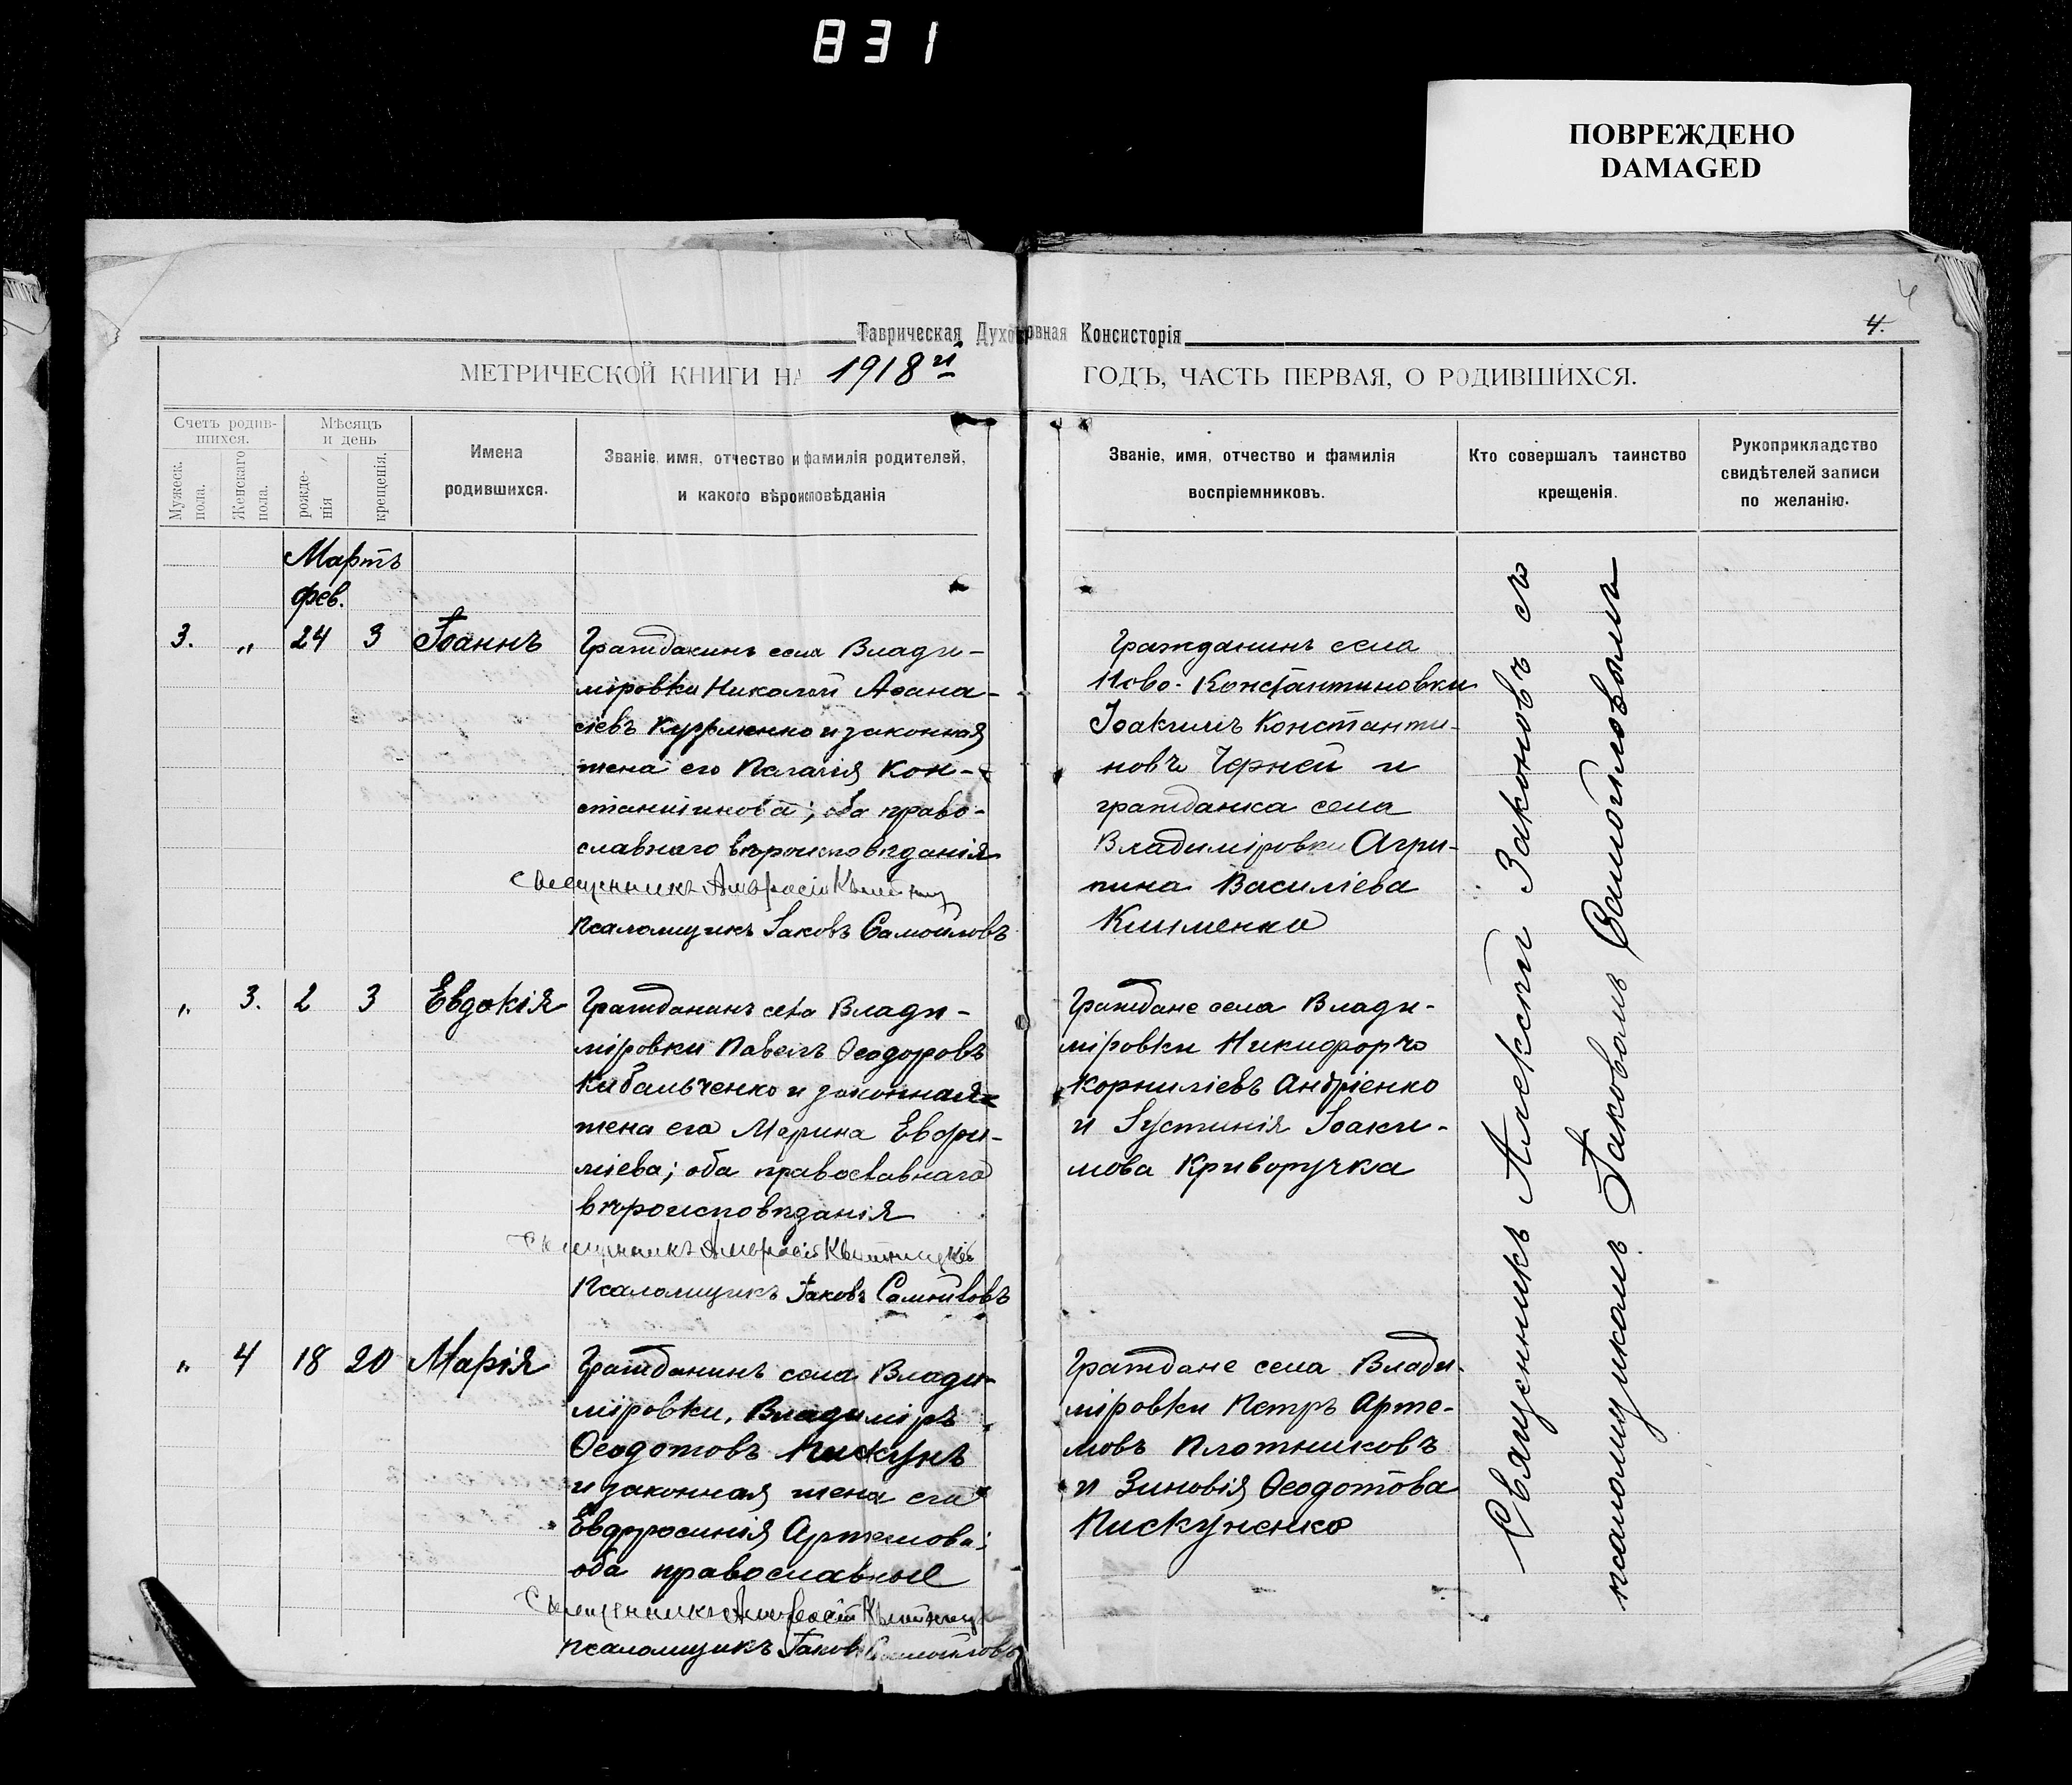 831
ПОВРЕЖДЕНО
DAMAGED
4
4.
Таврическая Духовная Консисторія
МЕТРИЧЕСКОЙ КНИГИ НА 1918й ГОДЪ, ЧАСТЬ ПЕРВАЯ, О РОДИВШИХСЯ.
Счетъ родив-
шихся.
Мужеск.
пола.
Женскаго
пола.
Мѣсяцъ
и день
рожде-
нія
крещенія.
Имена
родившихся.
Званіе, имя, отчество и фамилія родителей,
и какого вѣроисповѣданія
Званіе, имя, отчество и фамилія
воспріемниковъ.
Кто совершалъ таинство
крещенія.
Рукоприкладство
свидѣтелей записи
по желанію.
Мартъ
фев.
3. „ 24 3 Іоаннъ
Гражданинъ села Влади-
міровки Николай Аѳана-
сіевъ Кузьменко и законная
жена его Пелагія Кон-
стантинова; оба право-
славнаго вѣроисповѣданія
Священникъ Амвросій
Псаломщикъ Іаковъ Самойловъ
Гражданинъ села
Ново-Константиновки
Іоакимъ Константи-
новъ Черней и
гражданка села
Владиміровки Агри-
пина Василіева
Клименко
„ 3. 2 3 Евдокія
Гражданинъ села Влади-
міровки Павелъ Ѳеодоровъ
Кибальченко и законная
жена его Марина Евфи-
міева; оба православнаго
вѣроисповѣданія
Священникъ Амвросій
Псаломщикъ Іаковъ Самойловъ
Граждане села Влади-
міровки Никифоръ
Корниліевъ Андріенко
и Іустинія Іоаки-
мова Криворучка
„ 4 18 20 Марія
Гражданинъ села Влади-
міровки, Владиміръ
Ѳеодотовъ Пискунъ
и законная жена его
Евфросинія Артемова;
оба православные
Священникъ Амвросій
Псаломщикъ Іаковъ Самойловъ
Граждане села Влади-
міровки Петръ Арте-
мовъ Плотниковъ
и Зиновія Ѳеодотова
Пискуненко
Священникъ Алексѣй Законовъ съ
псаломщикомъ Іаковомъ Самойловымъ